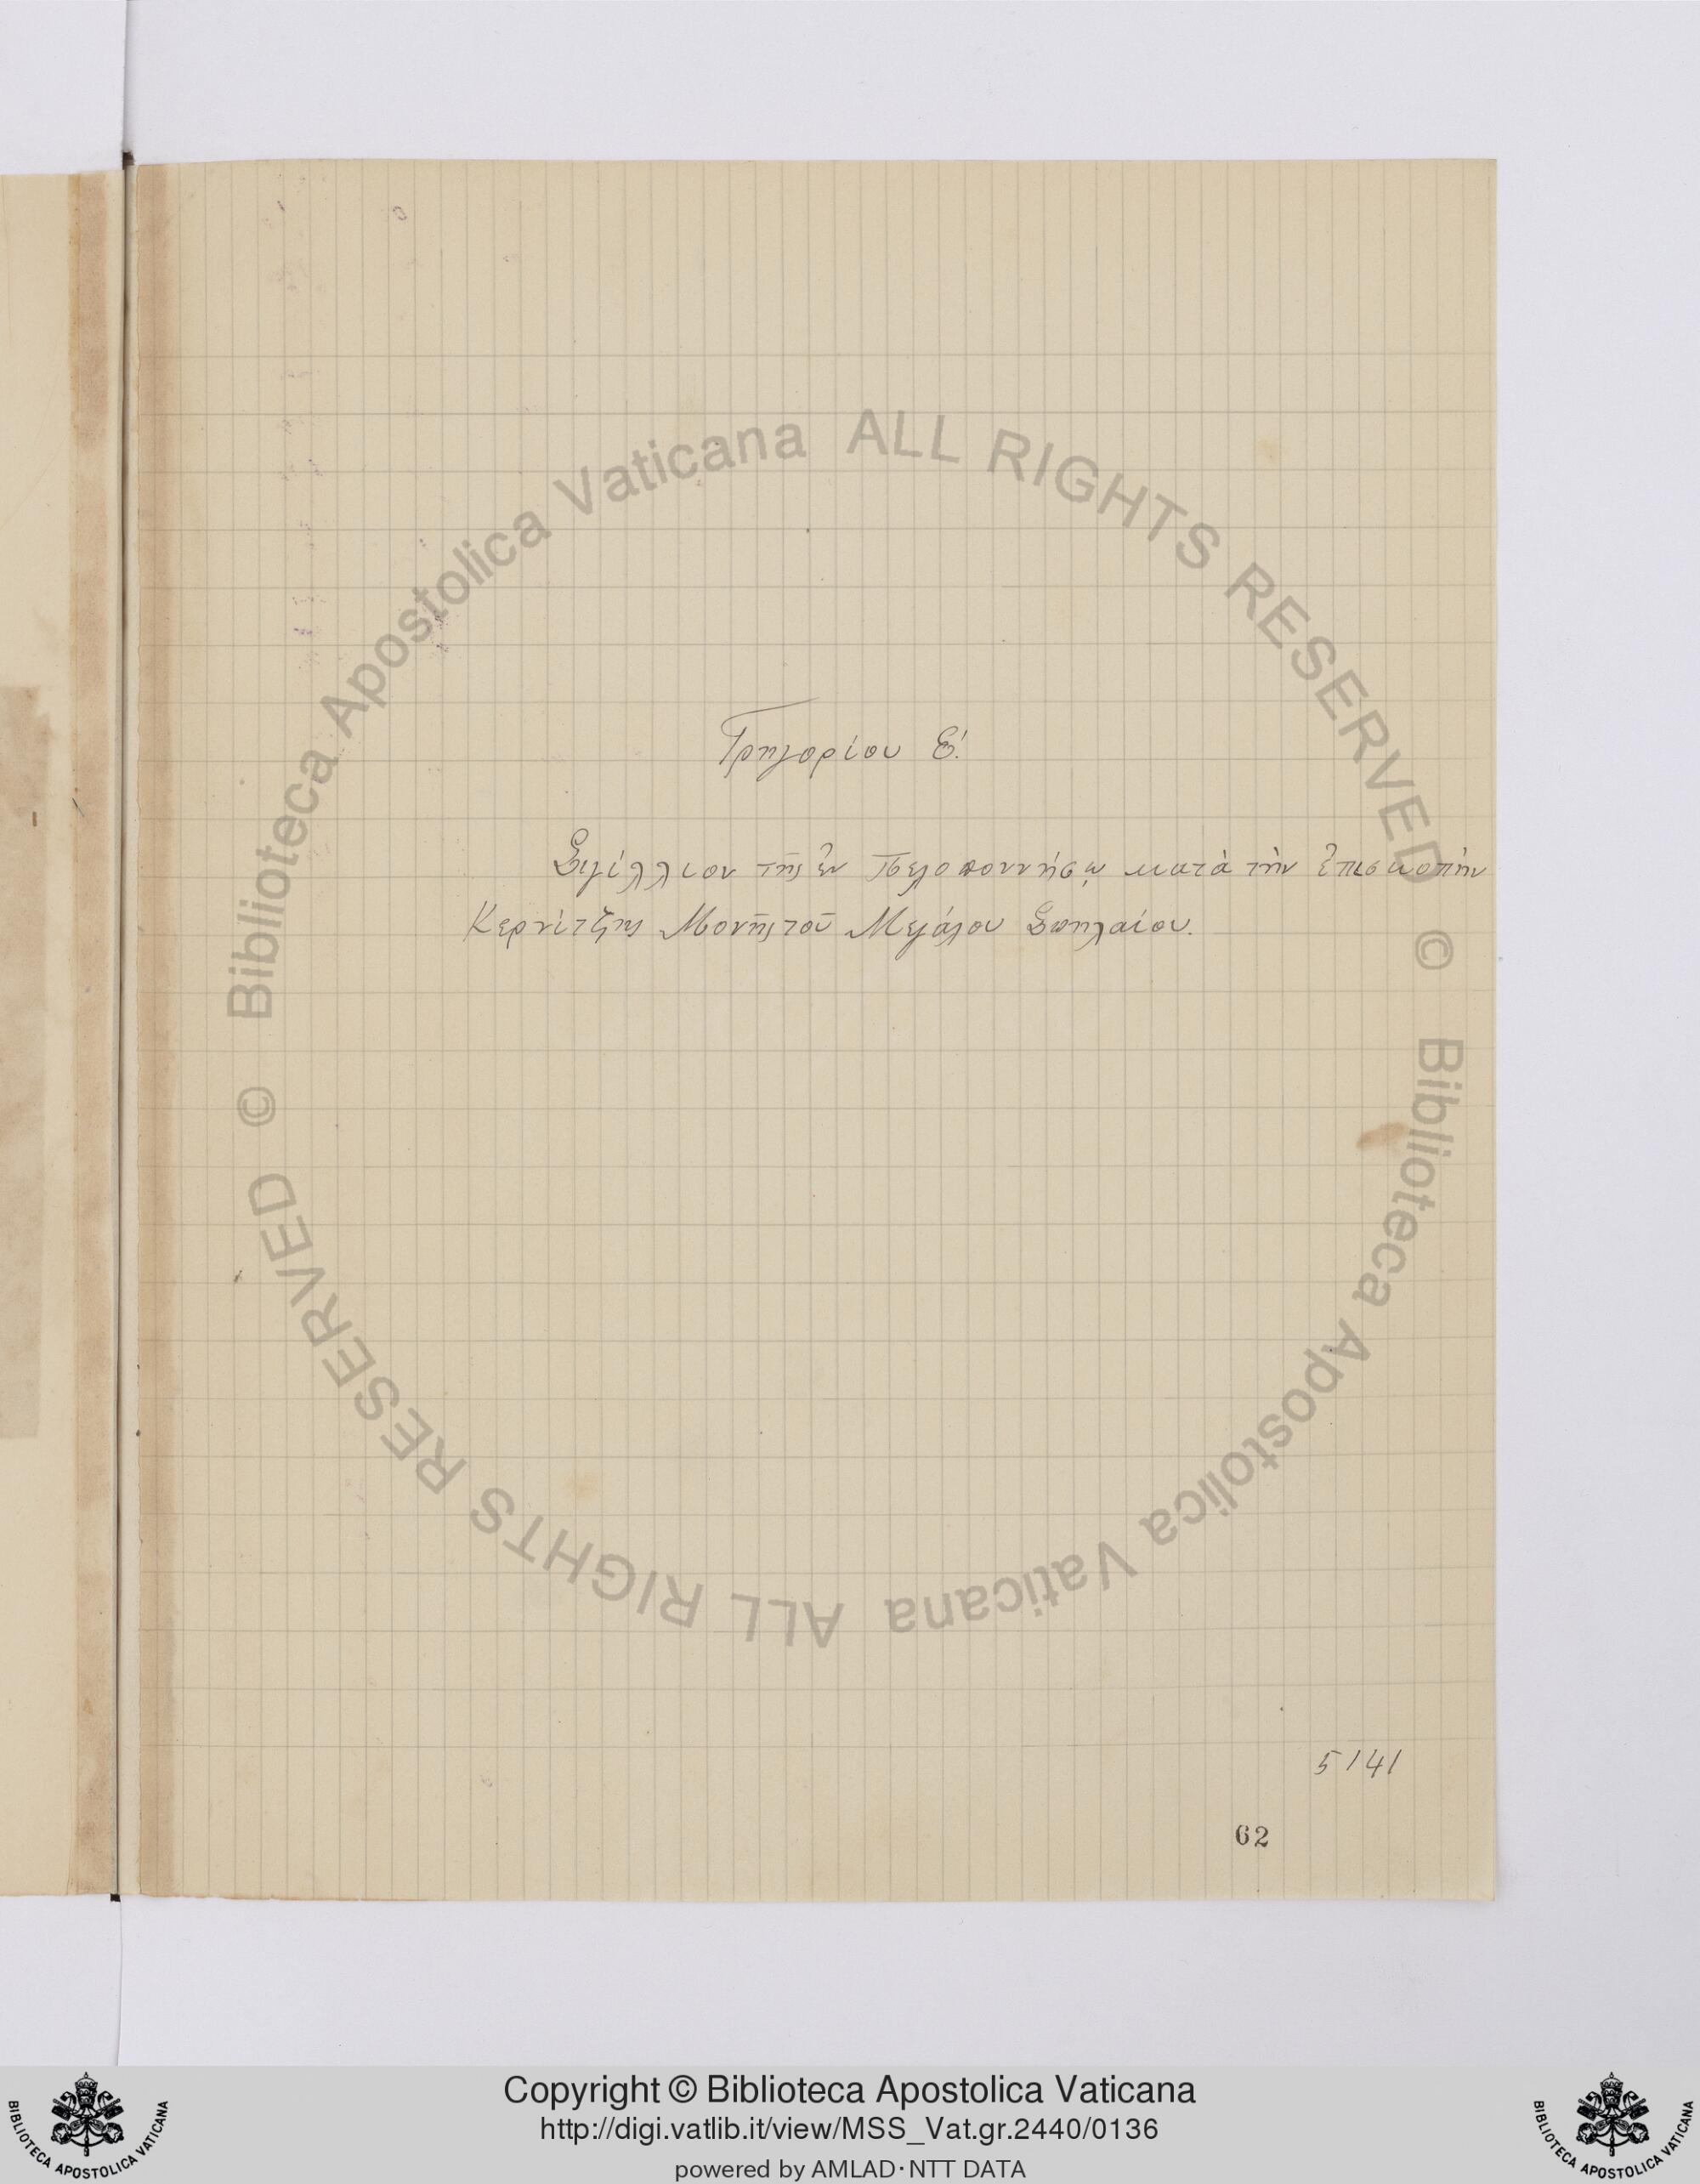 Γρηγορίου Ε΄.
Σιγίλλιον τῆς ἐν Πελοποννήσῳ κατὰ τὴν ἐπισκοπὴν
Κερνίτζης Μονῆς τοῦ Μεγάλου Σπηλαίου.
5141
62
© Biblioteca Apostolica Vaticana ALL RIGHTS RESERVED
© Biblioteca Apostolica Vaticana ALL RIGHTS RESERVED
Copyright © Biblioteca Apostolica Vaticana
http://digi.vatlib.it/view/MSS_Vat.gr.2440/0136
powered by AMLAD·NTT DATA
BIBLIOTECA APOSTOLICA VATICANA
BIBLIOTECA APOSTOLICA VATICANA